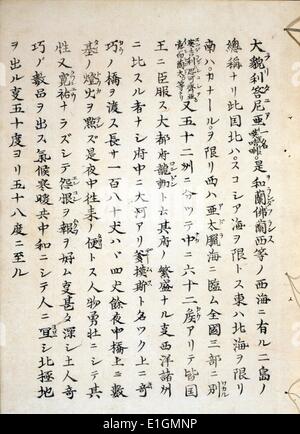 大貌利答尼亜是和蘭佛蘭西等ノ西海ニ有ル二島ノ
總稱ナリ此国北ハスコシア海ヲ限トス東ハ北海ヲ限リ
南ハカナールヲ限リ西ハ亜太海ニ臨ム全國三部ニ別
又五十二州ニ分ツテ中ニ六十二矦アリテ皆国
王ニ臣服ス大都府龍動ト云其府ノ繁盛ナル支西洋諸州
ニ比スル者ナシ府中ニ大河アリ斯ト名ツク上ニ奇
巧ノ橋ヲ渡ス長サ一百八十丈ハヾ四丈餘夜中橋上ニ數
基ノ燈火ヲ點ズ是夜中往来ノ便トス人物勇壮ニシテ其
性又寛裕ナラズシテ怨恨ヲ報ヲ好ム支甚タ深シ土人奇
巧ノ数品ヲ出ス氣候寒暖共中和ニシテ人ニ宜シ北極地
ヲ出ル支五十度ヨリ五十八度ニ至ル
alamy
E1GMNP